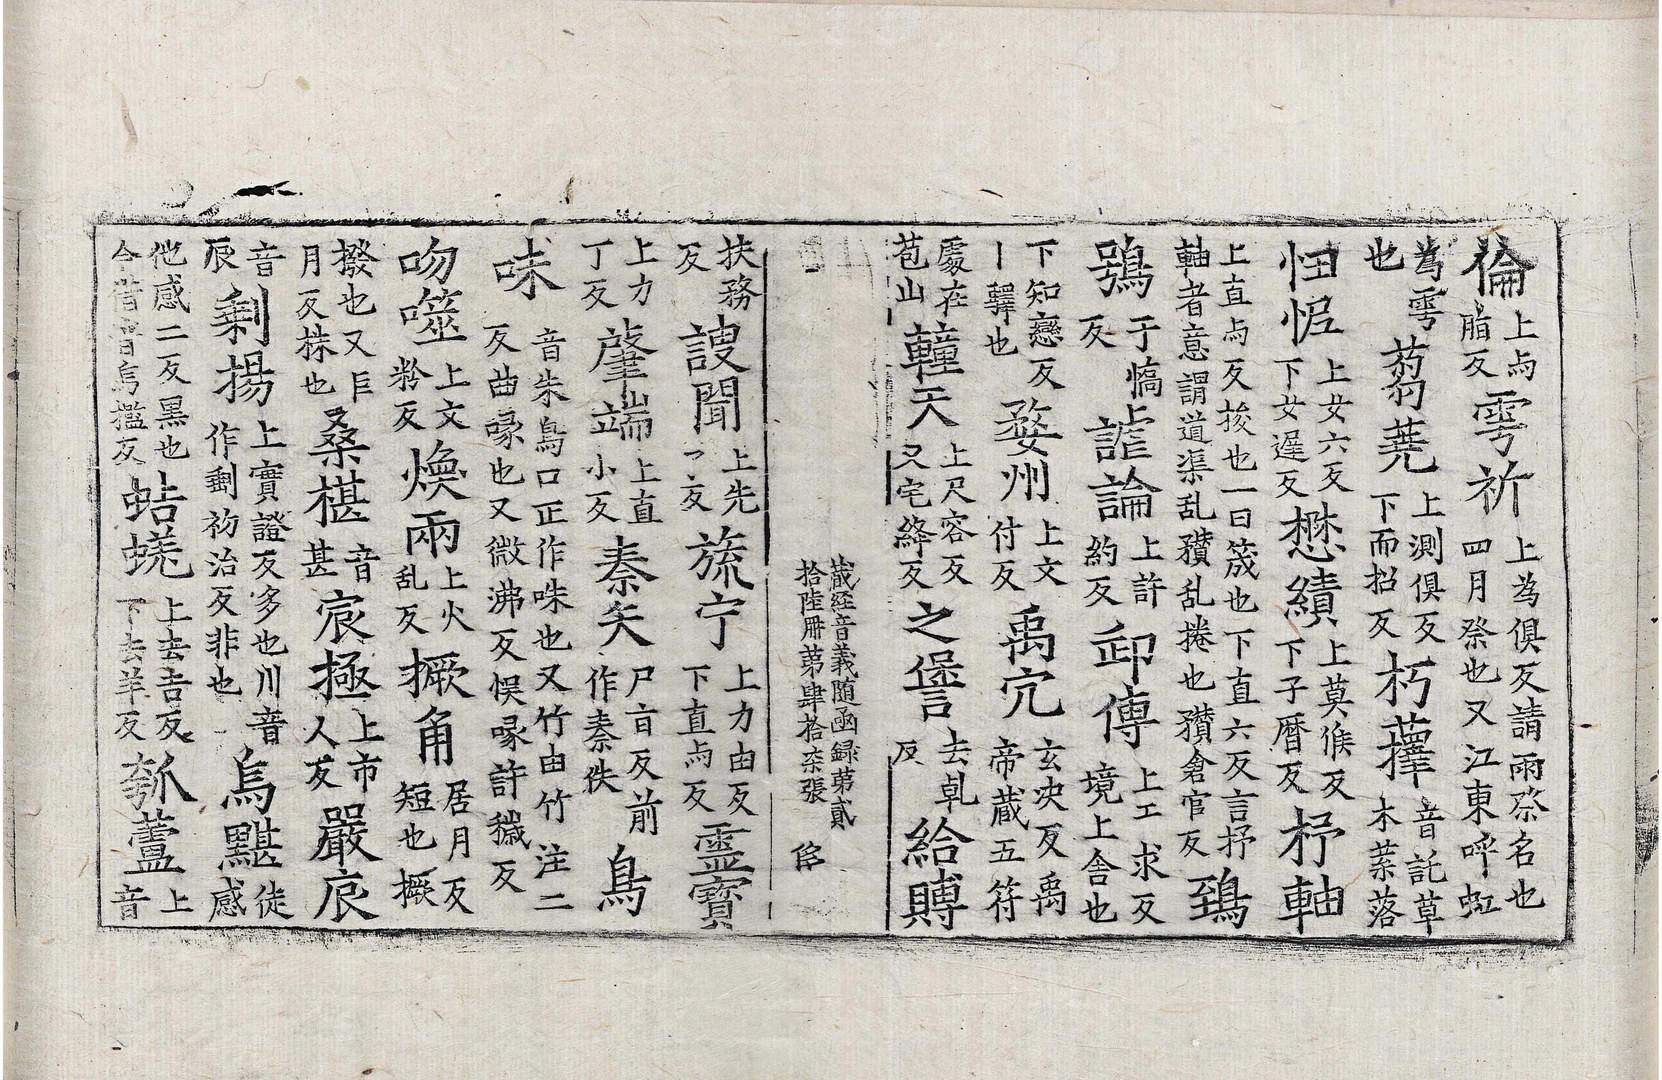 倫上卨脂反雩祈上為俱反請雨祭名也四月祭也又江東呼虹
為雩蒭蕘上測俱反下而招反朽蘀音託草木葉落也
忸怩上女六反下女遲反懋績上莫候反下子曆反杼軸
上直卨反梭也一曰筬也下直六反言抒軸者意謂道渠乱欑乱捲也欑倉官反鵄
鴞于憍反謔論上許約反卸傳上工求反境上舍也
下知戀反丨驛也婺州上文付反禹穴玄决反禹帝蔵五符
處在苞山䡴天上尺容反又宅絳反之堡去乹反給賻
蔵経音義随函録第貳拾陸冊第肆拾柒張
扶務反謏聞上先了反旒宁上力由反下直卨反靈寳
上力丁反肇端上直小反秦矢尸亩反前作秦佚鳥
味音朱鳥口正作咮也又竹由竹注二反曲喙也又微沸反悮喙許穢反
吻噬上文粉反煥兩上火乱反撅角居月反短也橛
撥也又巨月反株也桑椹音甚宸極上市人反嚴扆
音扆剩揚上實證反多也川音作劃初治反非也烏黮徒感
他感二反黒也今借音烏檻反蛣蜣上去吉反下去羊反瓠蘆上音